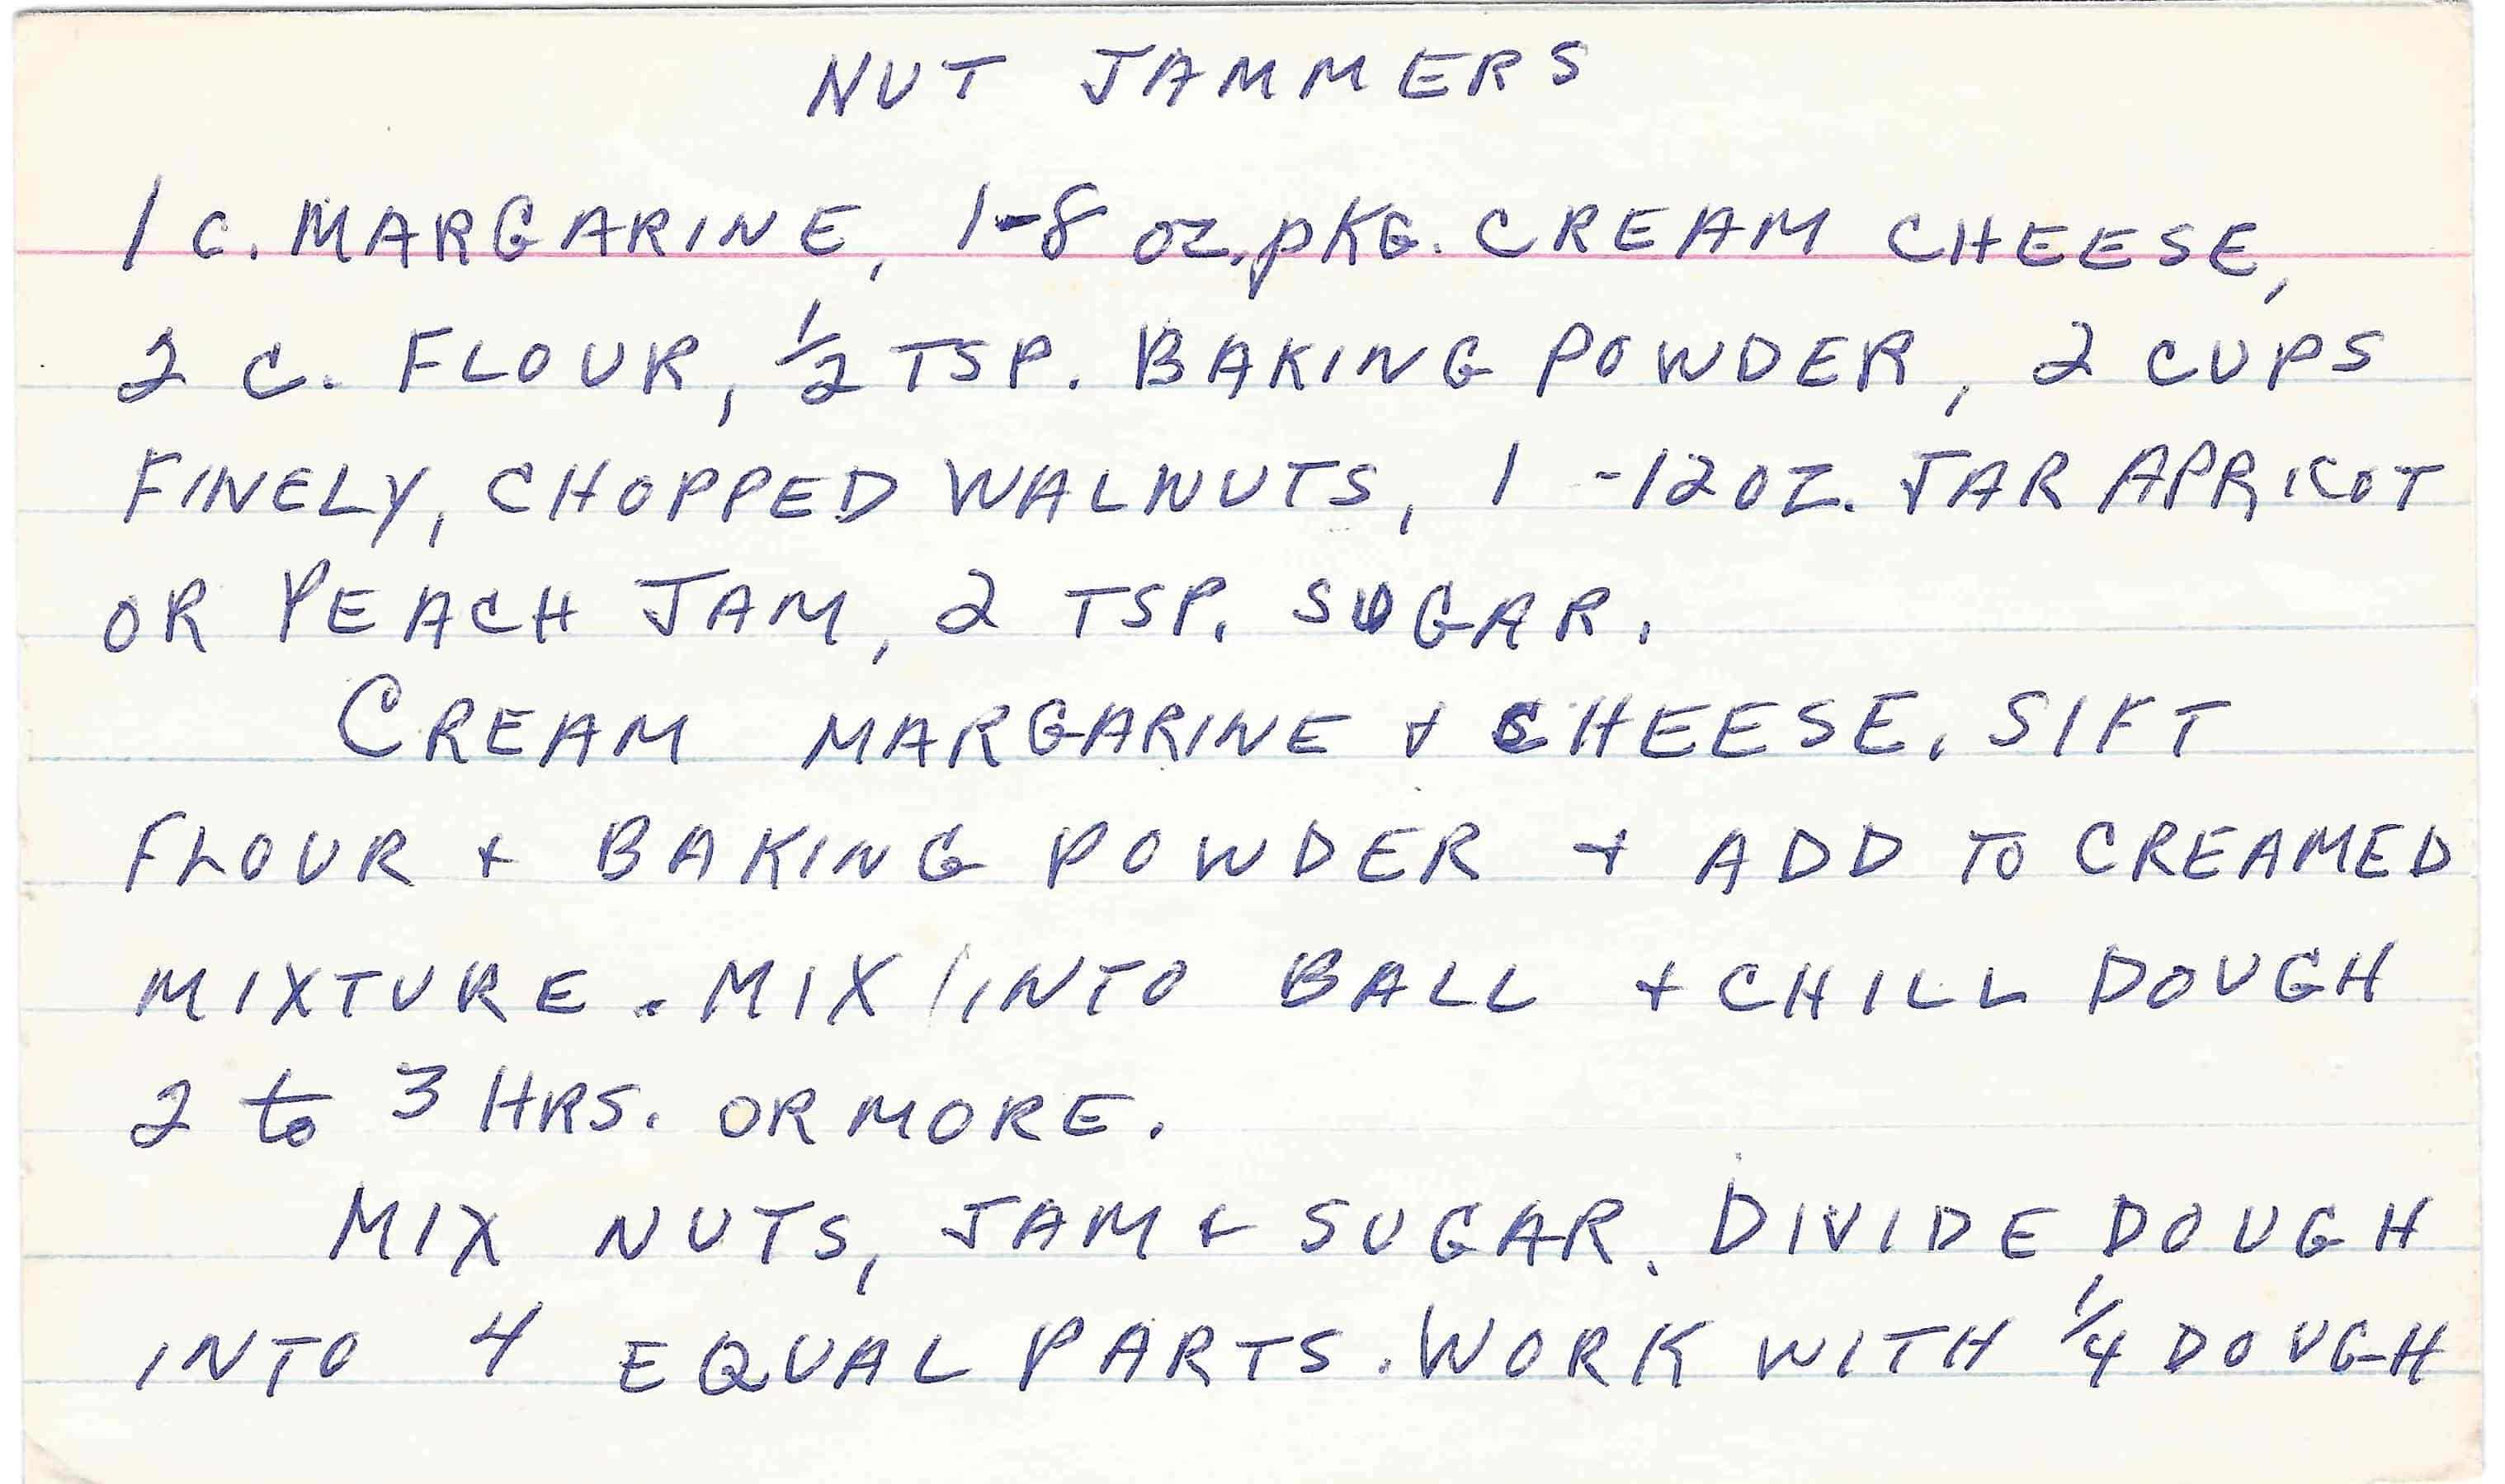 NUT JAMMERS
1 C. MARGARINE, 1-8 OZ. PKG. CREAM CHEESE,
2 C. FLOUR, ½ TSP. BAKING POWDER, 2 CUPS
FINELY, CHOPPED WALNUTS, 1 -12 OZ. JAR APRICOT
OR PEACH JAM, 2 TSP. SUGAR.
CREAM MARGARINE + CHEESE. SIFT
FLOUR + BAKING POWDER + ADD TO CREAMED
MIXTURE. MIX INTO BALL + CHILL DOUGH
2 to 3 HRS. OR MORE.
MIX NUTS, JAM & SUGAR. DIVIDE DOUGH
INTO 4 EQUAL PARTS. WORK WITH ¼ DOUGH